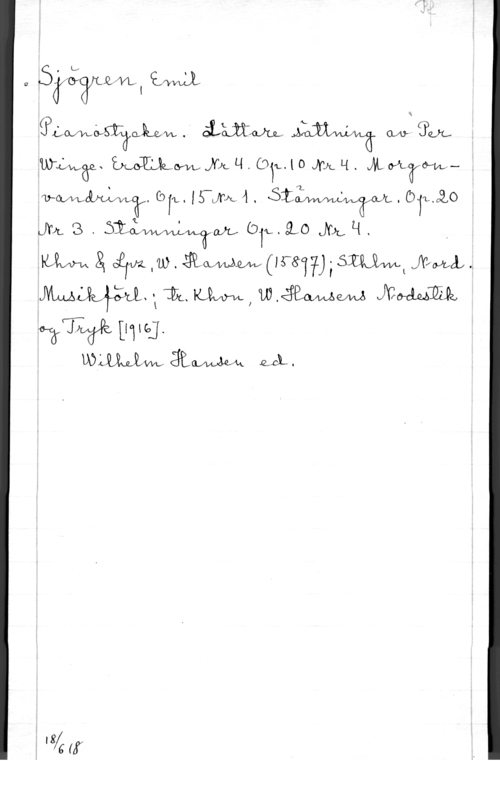 Pf
Sjögren, Emil
Pianostycken. Lättare sättning av Per
Winge. Erotikon Nr 4. Op. 10 Nr 4. Morgon-
vandring. Op. 15 Nr 1. Stämningar. Op. 20
Nr 3. Stämningar Op. 20 Nr 4.
Khvn & Lpz, W. Hansen (15897); Sthlm, Nord.
Musikförl.; tr. Khvn, W. Hansens Nodestik
og Tryk [1916].
Wilhelm Hansen ed.
18/6 18